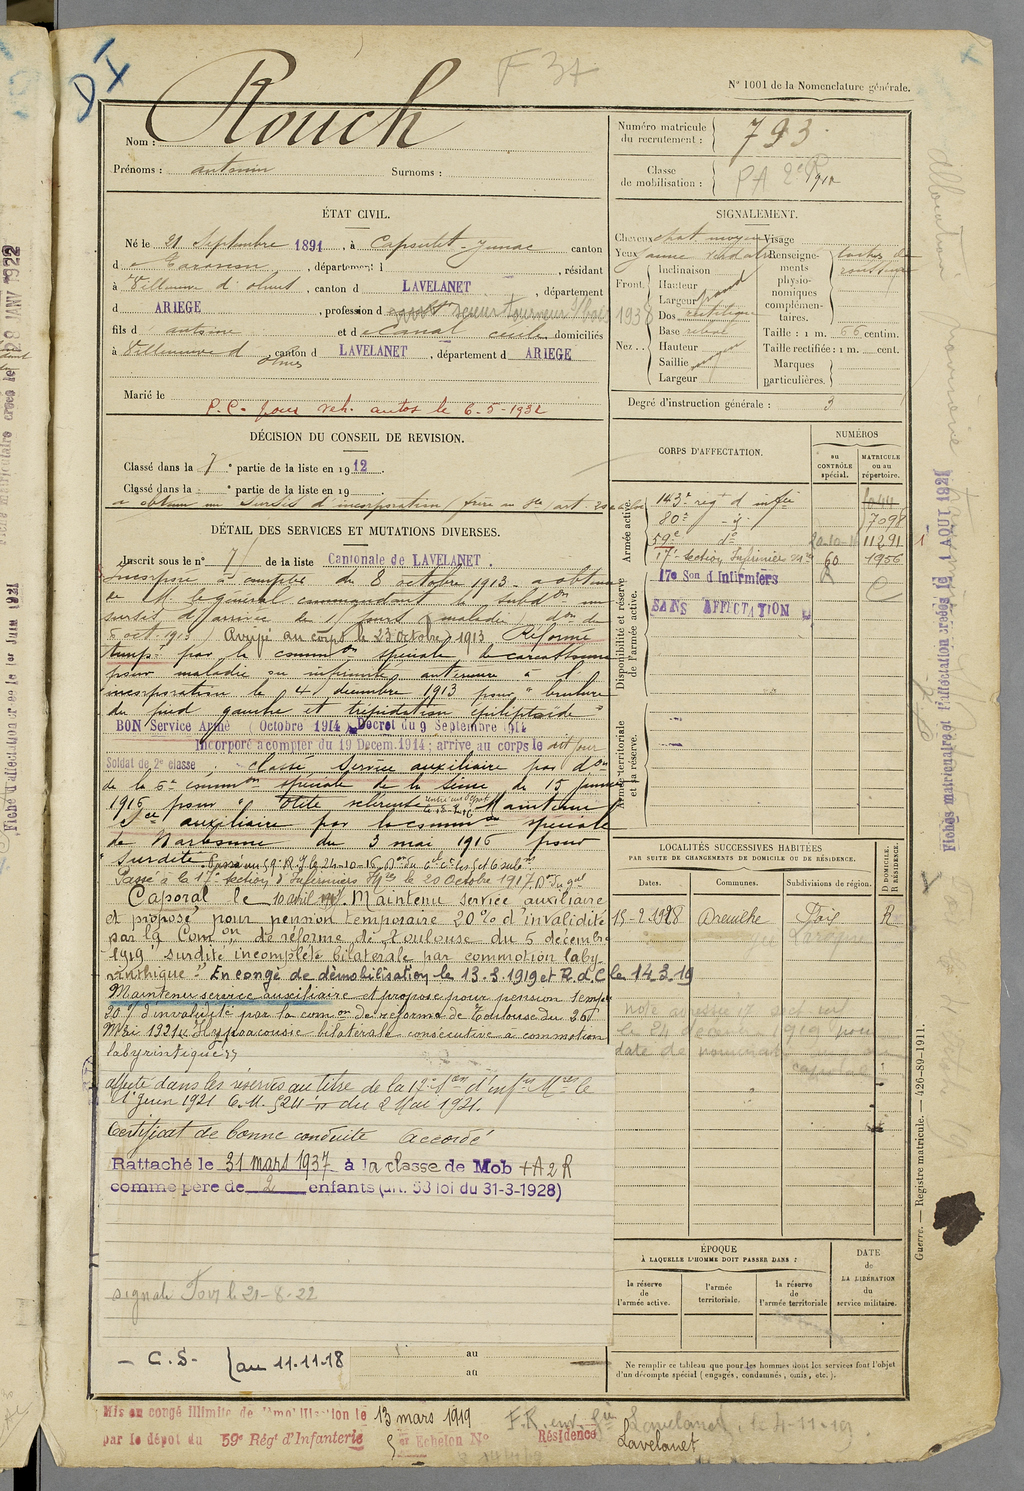 F 37
DI
N° 1001 de la Nomenclature générale.
Nom : Rouch
Prénoms : antonin Surnoms :
Numéro matricule du recrutement : 793
Classe de mobilisation : PA 2e R 1912
ÉTAT CIVIL.
Né le 21 Septembre 1891, à Capoulet-Junac canton
d Tarascon, département d , résidant
à Villeneuve d'olmes, canton d LAVELANET, département
d ARIEGE, profession d tourneur s/bois
fils d antoine et de Canal cécile domiciliés
à Villeneuve d olmes canton d LAVELANET, département d ARIEGE
Marié le
P.C. pour veh. autos le 6-5-1932
SIGNALEMENT.
Cheveux chat moyen Visage
Yeux jaune verdatre
Front. Inclinaison
Hauteur
Largeur grand
Nez. Dos rectiligne
Base relevé
Hauteur
Saillie
Largeur
Renseignements physionomiques complémentaires. taches de rousseur
Taille : 1 m. 66 centim.
Taille rectifiée : 1 m. cent.
Marques particulières.
1938
Degré d'instruction générale : 3
DÉCISION DU CONSEIL DE REVISION.
Classé dans la 7e partie de la liste en 1912.
Classé dans la e partie de la liste en 19
a obtenu un sursis d'incorporation (frère au Sce art. 20
DÉTAIL DES SERVICES ET MUTATIONS DIVERSES.
Inscrit sous le n° 7 de la liste Cantonale de LAVELANET.
Incorporé à compter du 8 octobre 1913. a obtenu
de M. le général commandant la subdon un
sursis d'arrivée de 15 jours (maladie) don du
6 oct 1913. Arrivé au corps le 23 octobre 1913. Réformé
tempre par la common spéciale de Carcassonne
pour maladie ou infirmité antérieure à l'
incorporation le 4 décembre 1913 pour "
du pied gauche et trépidation épileptoïde"
BON Service Armé Octobre 1914 Décret du 9 Septembre 1914
Incorporé à compter du 19 Décem. 1914; arrivé au corps le dit jour
Soldat de 2e classe. Classé Service auxiliaire par don
de la 6e common spéciale de la Seine du 15 janvier
1916 pour Otite Maintenu
Sce auxiliaire par la common spéciale
de Narbonne du 3 mai 1916 pour
"Surdité". Passé au 59e R.I. le 24-10-16
Passé à la 17e section d'Infirmiers Mres le 20 octobre 1917.
Caporal le 10 avril Maintenu service auxiliaire
et proposé pour pension temporaire 20% d'invalidité
par la Comon de réforme de Toulouse du 5 décembre
1919 "surdité incomplète bilatérale par commotion laby-
rinthique". En congé de démobilisation le 13.3.1919 et R d C le 14.3.19
Maintenu service auxiliaire et proposé pour pension tempre
20% d'invalidité par la comon de réforme de Toulouse du 26
Mai 1921 "Hypoacousie bilatérale consécutive à commotion
labyrintique"
affecté dans les réserves au titre de la 17e Son d'infrs Mres le
1er Juin 1921 C.M. 524 du 2 Mai 1921.
Certificat de bonne conduite accordé
Rattaché le 31 mars 1937 à la classe de Mob + A 2 R
comme père de 2 enfants (art. 58 loi du 31-3-1928)
signalé Foix le 21-8-22
- C.S. - (au 11.11.18
au
au
CORPS D'AFFECTATION.
NUMÉROS
au CONTRÔLE spécial.
MATRICULE ou au répertoire.
Armée active.
143e régt d'infie 1044
80e - 7098
59e do 20-10-16 11291
17e section Infirmiers Mres 60 1956
Disponibilité et réserve de l'armée active.
17e Son d'Infirmiers
SANS AFFECTATION
Armée territoriale et sa réserve.
LOCALITÉS SUCCESSIVES HABITÉES
PAR SUITE DE CHANGEMENTS DE DOMICILE OU DE RÉSIDENCE.
Dates. Communes. Subdivisions de région. D DOMICILE. R RÉSIDENCE.
15-2-1928 Dreuilhe Foix R
note adressée 17 sect.
le 24 décembre 1919 pour
date de nomination
caporal
ÉPOQUE
À LAQUELLE L'HOMME DOIT PASSER DANS :
la réserve de l'armée active.
l'armée territoriale.
la réserve de l'armée territoriale
DATE de LA LIBÉRATION du service militaire.
Ne remplir ce tableau que pour les hommes dont les services font l'objet
d'un décompte spécial (engagés, condamnés, omis, etc.).
Mis en congé illimité de démobilisation le 13 mars 1919
par le dépôt du 59e Régt d'Infanterie Echelon N° Résidence Lavelanet
F.R. env. Gie Lavelanet. le 4-11-19
Guerre. — Registre matricule. — 426-89-1911.
Fiches matricule et d'affectation créées le 1 AOUT 1921
Fiche matriculaire créée le 28 JANV 1922
Fiche d'affectation créée le 1er Juin 1921